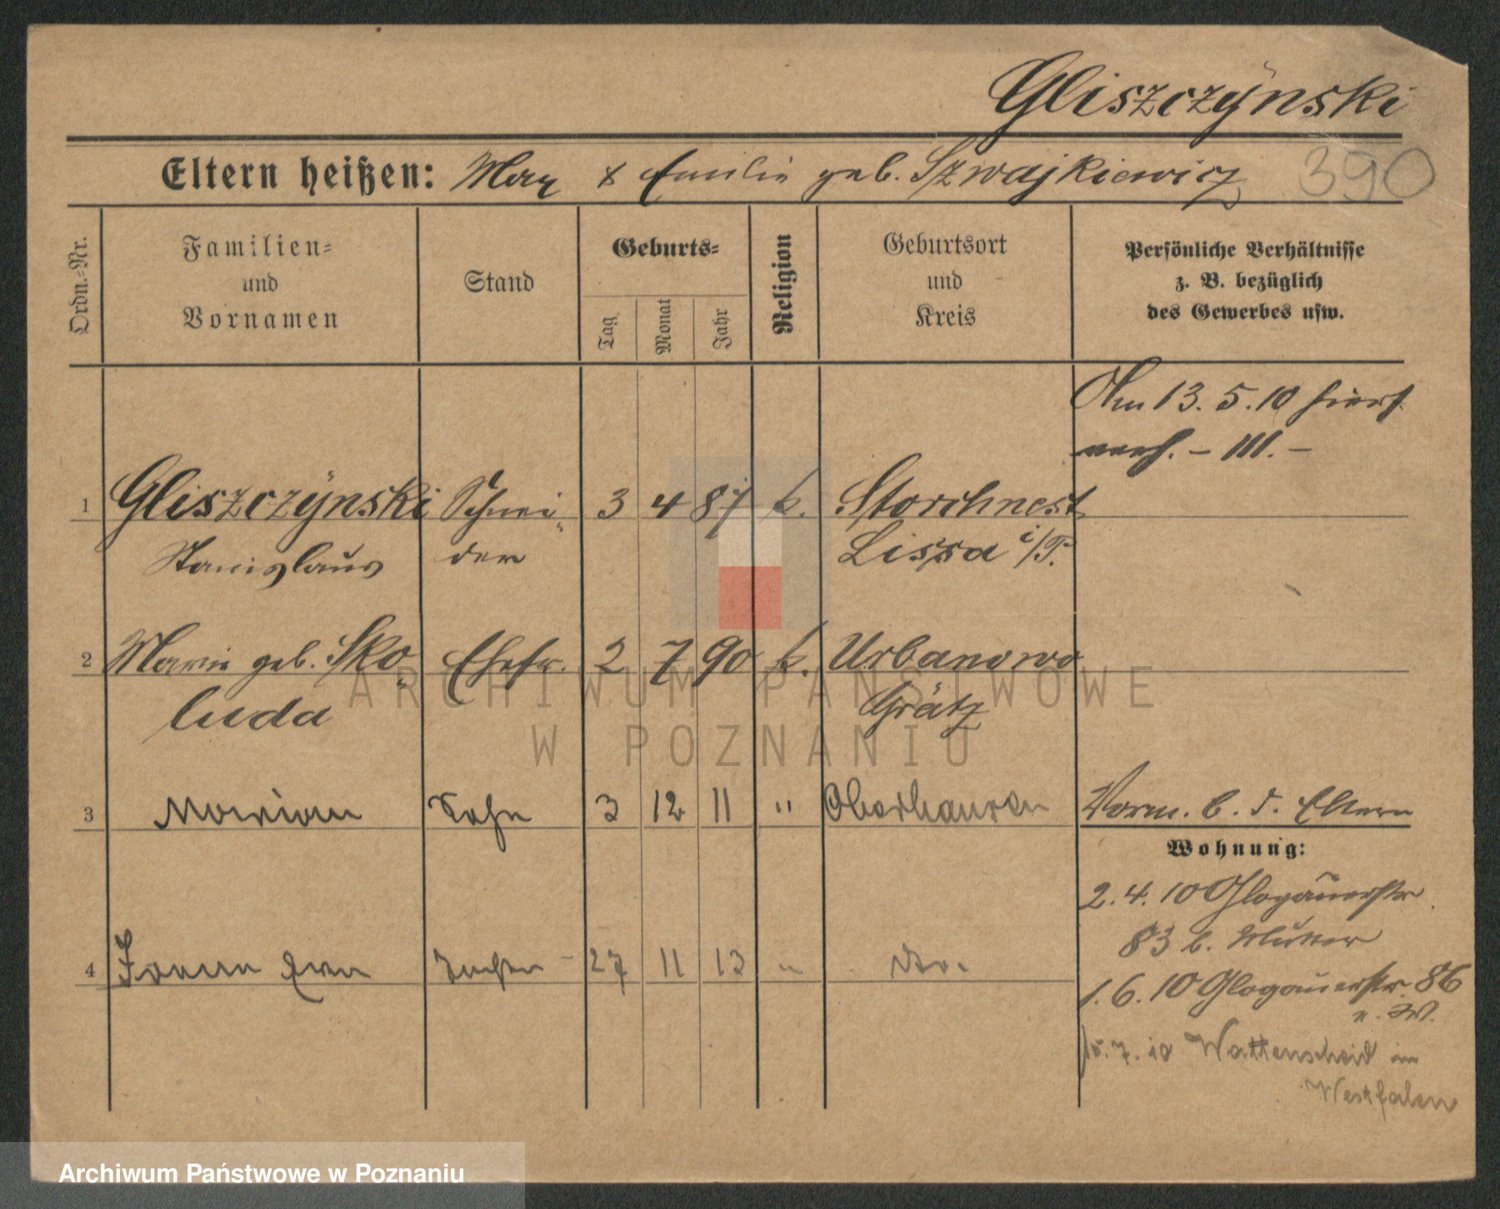 Gliszczÿnski
Eltern heißen: Max & Emilie geb. Szwajkiewicz 390
Ordn.-Nr.
Familien-
und
Vornamen
Stand
Geburts-
Tag
Monat
Jahr
Religion
Geburtsort
und
Kreis
Persönliche Verhältnisse
z. B. bezüglich
des Gewerbes usw.
Am 13. 5. 10 hiers.
verh. – III. –
1 Gliszczÿnski Schnei- 3 4 87 k. Storchnest
Stanislaus der Lissa i/P.
2 Marie geb. Sko- Ehefr. 2 7 90 k. Urbanowo
luda Grätz
3 Marian Sohn 3 12 11 " Oberhausen
Vorm. b. d. Eltern
Wohnung:
2. 4. 10 Glogauerstr.
83 b. Mutter
4 Irene Tochter 27 11 13 " do.
1. 6. 10 Glogauerstr. 86
15. 7. 10 Wattenscheid in
Westfalen
ARCHIWUM PAŃSTWOWE
W POZNANIU
Archiwum Państwowe w Poznaniu